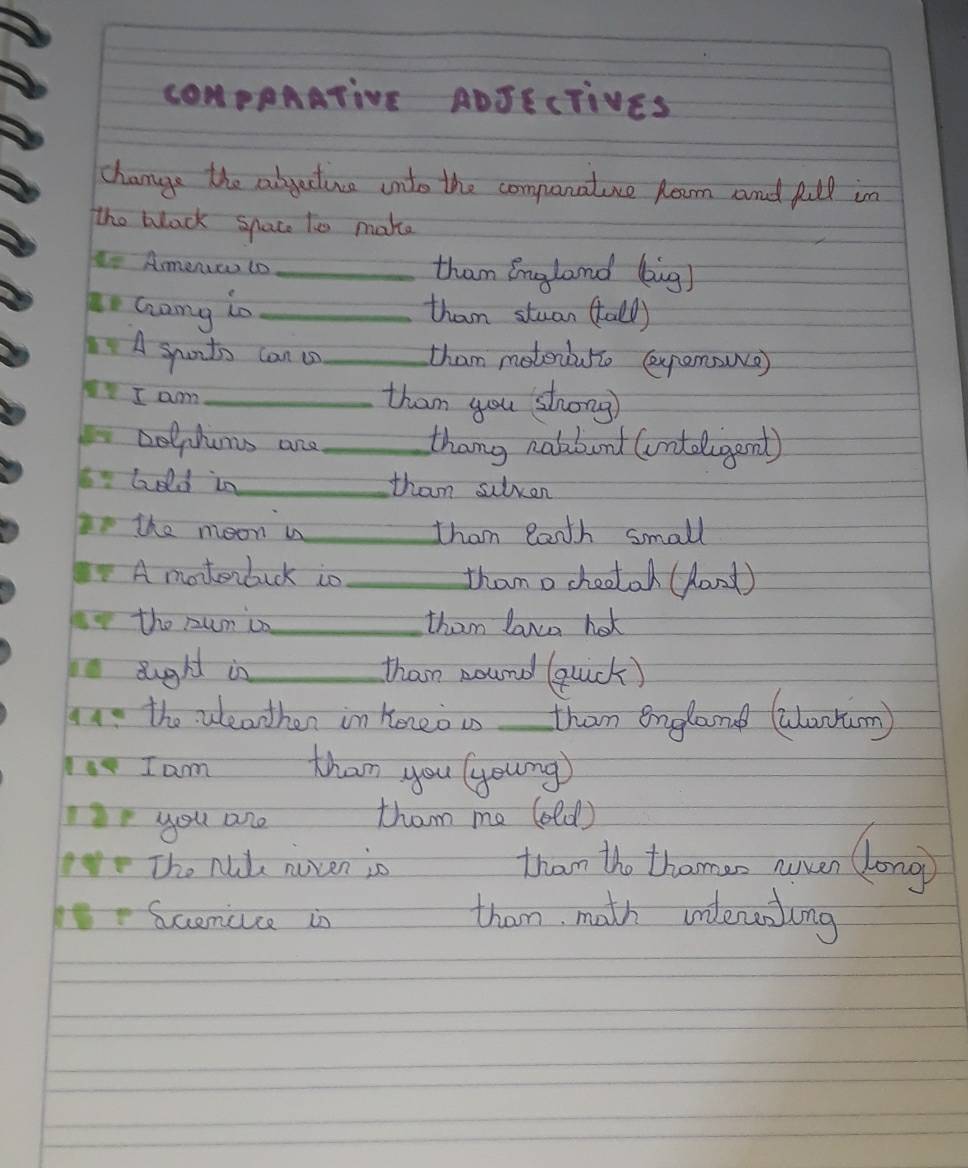 COMPARATIVE ADJECTIVES
Change the abjective into the comparative form and fill in
the black space to make
1= America is ________ than England (big)
2= Gramy is ________ than stuar (tall)
3= A sports car is ________ than motorbike (expensive)
4= I am ________ than you (strong)
5= Dolphins are ________ thang rabbint (inteligent)
6= Gold is ________ than silver
7= the moon is ________ than Earth small
8= A motorback is ________ than a cheetah (fast)
9= the sun is ________ than lava hot
10 Light is ________ than sound (quick)
11= the wearther in Korea is ____ than England
I am than you (young)
13= you are than me (old)
14= The Nile river is than the thames river (long)
15= Sciencice is than math interesting